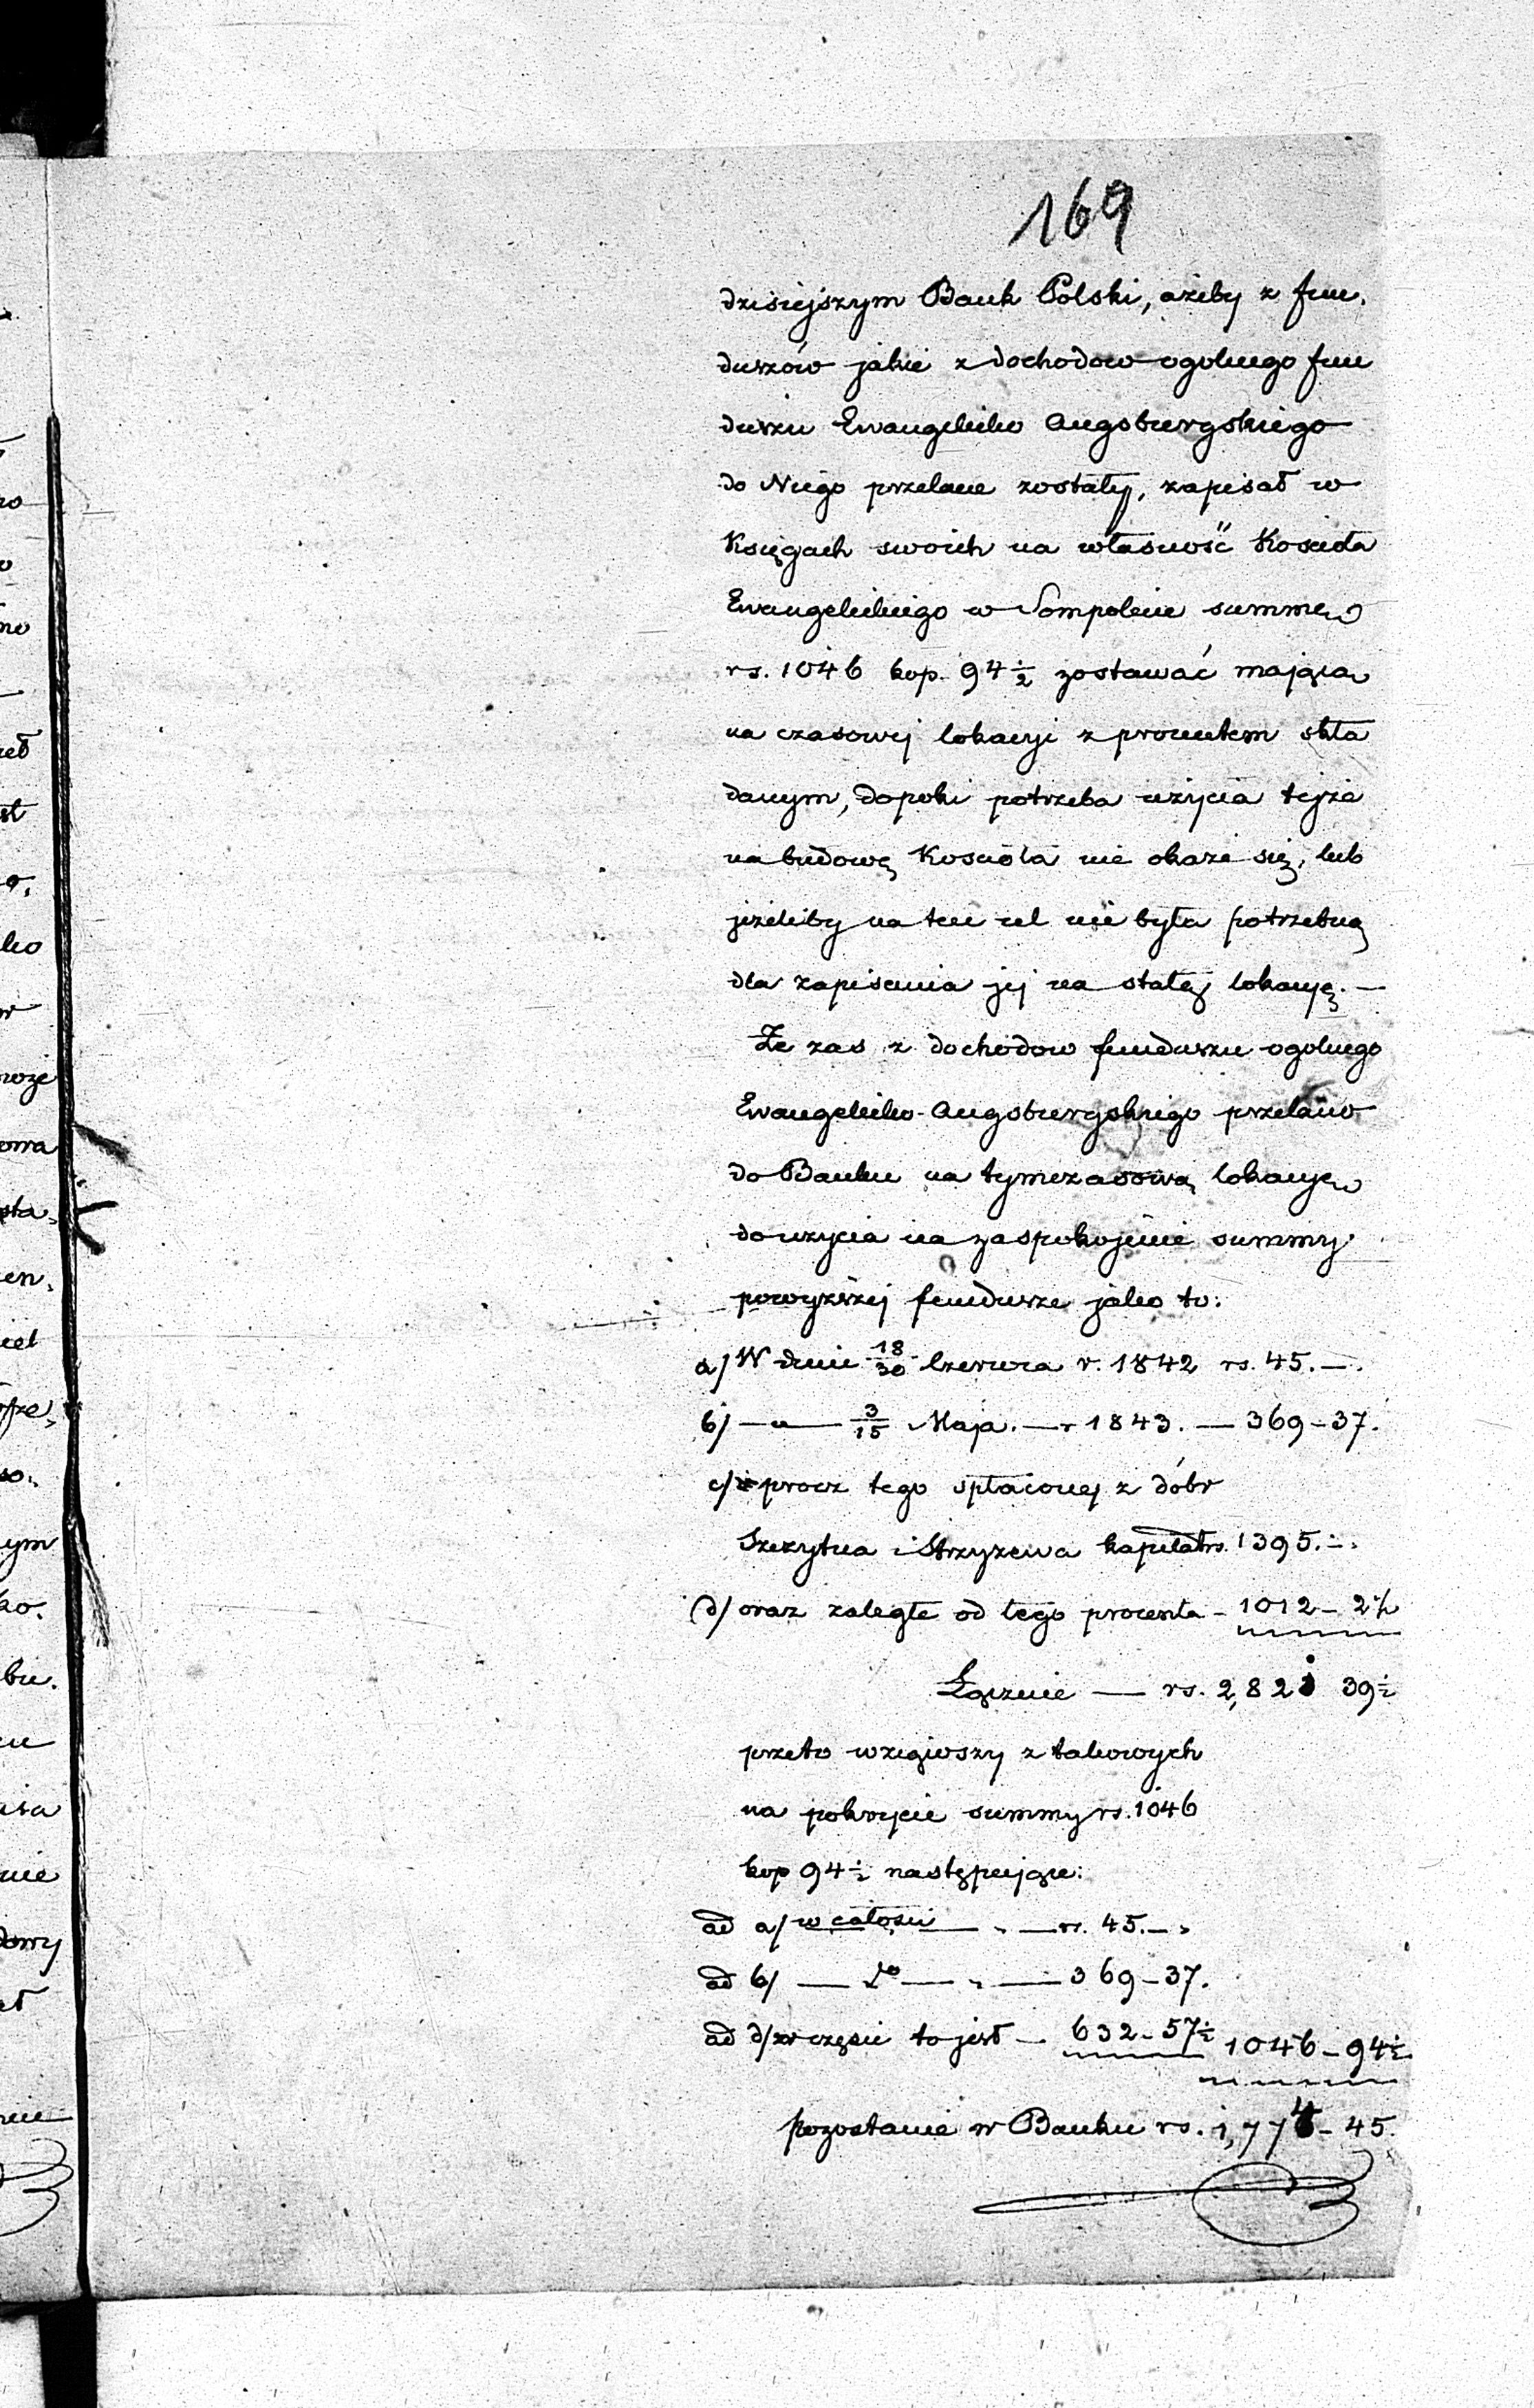 169
dzisiejszym Bank Polski, ażeby z fun,
duszów jakie z dochodow ogolnego fun
duszu Ewangelicko Augsburgskiego
do Niego przelane zostały, zapisał w
Księgach swoich na własność Kościoła
Ewangelickiego w Sompolnie summę
rs. 1046 kop. 94 1/2 zostawać mającą
na czasowej lokacyi z procentem skła
danym, dopoki potrzeba użycia tejże
na budowę Kościoła nie okaże się, lub
jeżeliby na ten cel nie była potrzebną
dla zapisania jej na stałą lokacyę. —
Że zas z dochodow funduszu ogolnego
Ewangelicko-Augsburgskiego przelano
do Banku na tymczasową lokacyę
do uzycia na zaspokojenie summy
powyższej fundusze jako to:
a/ W dniu 18/30 Czerwca r. 1842 rs. 45. —.
b/ — „ — 3/15 Maja. — r 1843. — 369-37.
c/ procz tego spłaconej z dóbr
Szczytna i Strzyzewa kapitał rs. 1395. —.
d/ oraz zaległe od tego procenta - 1012 - 2 1/2
Łącznie — rs. 2,821 39 1/2
przeto wziąwszy z takowych
na pokrycie summy rs. 1046
kop 94 1/2 następujące:
ad a/ w całości — „ — rs. 45. — „
ad b/ — do — „ — 369-37.
ad d/ w części to jest — 632-57 1/2 1046-94 1/2
pozostanie w Banku rs. 1,774-45.